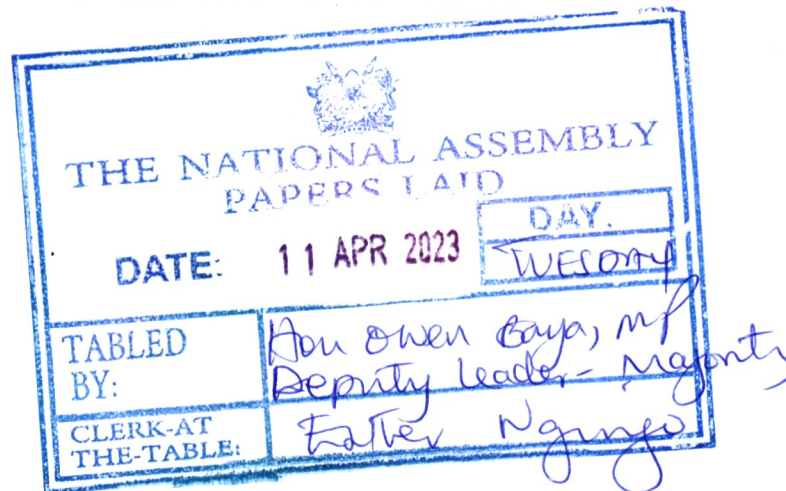 THE NATIONAL ASSEMBLY
PAPERS LAID
DATE: 11 APR 2023
DAY.
TUESDAY
TABLED BY:
Hon Owen Baya, MP
Deputy Leader - Majority
CLERK-AT THE-TABLE: